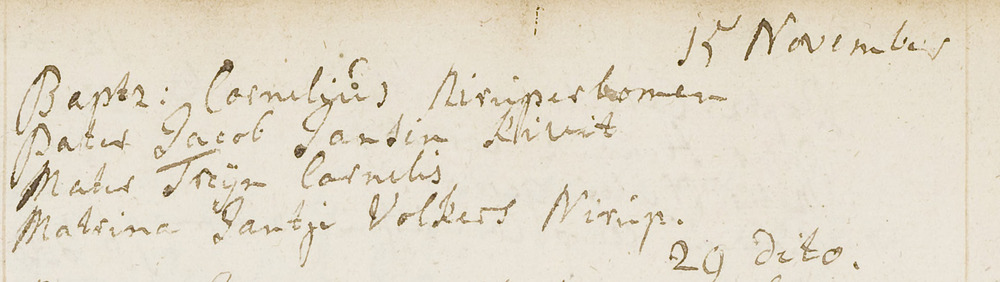 15 November
Baptz: Cornelijus Niruperkomen
Pater Jacob Jantin Kivit
Mater Trijn Cornelis
Matrina Jantji Volkers Nirup.
29 dito.